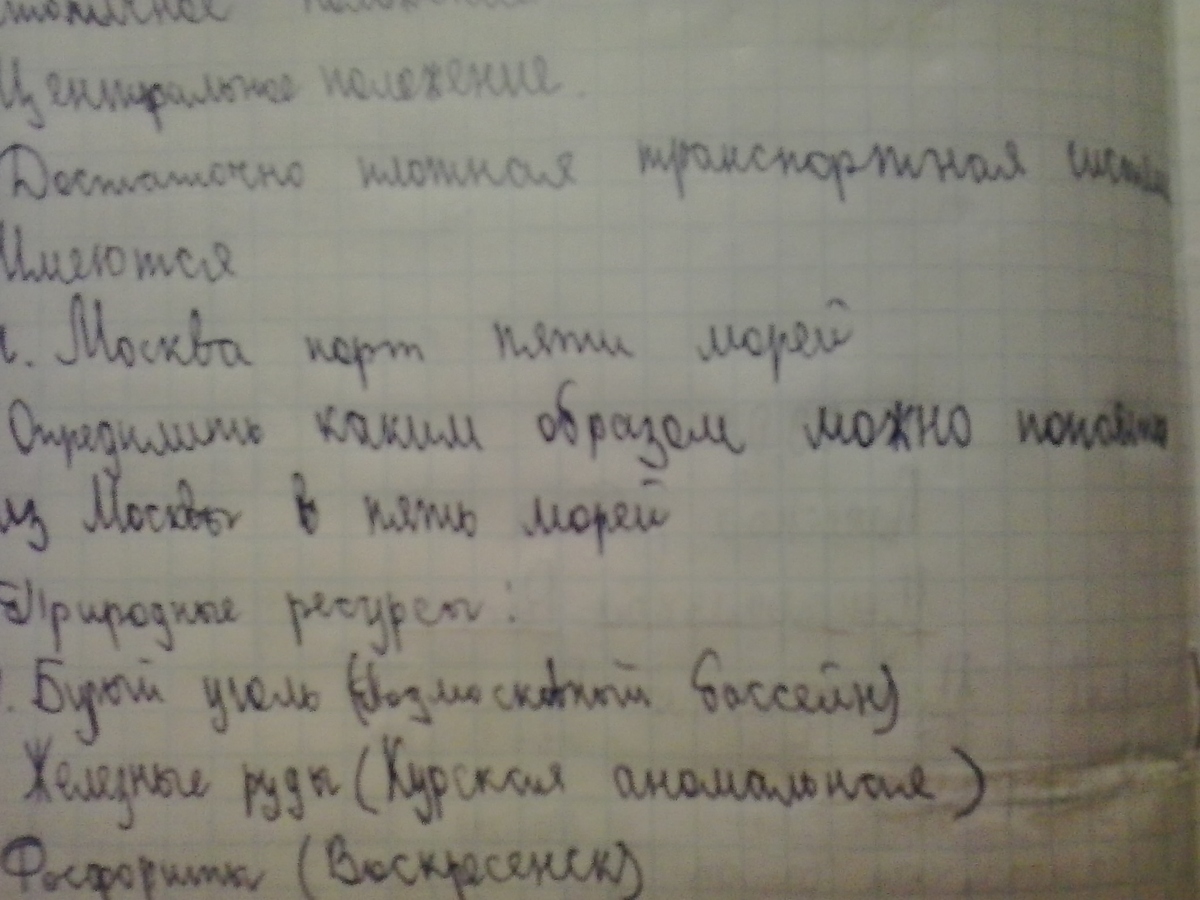 Центральное положение.
Достаточно плотная транспортная
Имеются
Москва порт пяти морей
Определить каким образом можно
из Москвы в пять морей
Природные ресурсы:
Бурый уголь (Подмосковный бассейн)
Железные руды (Курская аномальная)
Фосфориты (Воскресенск)